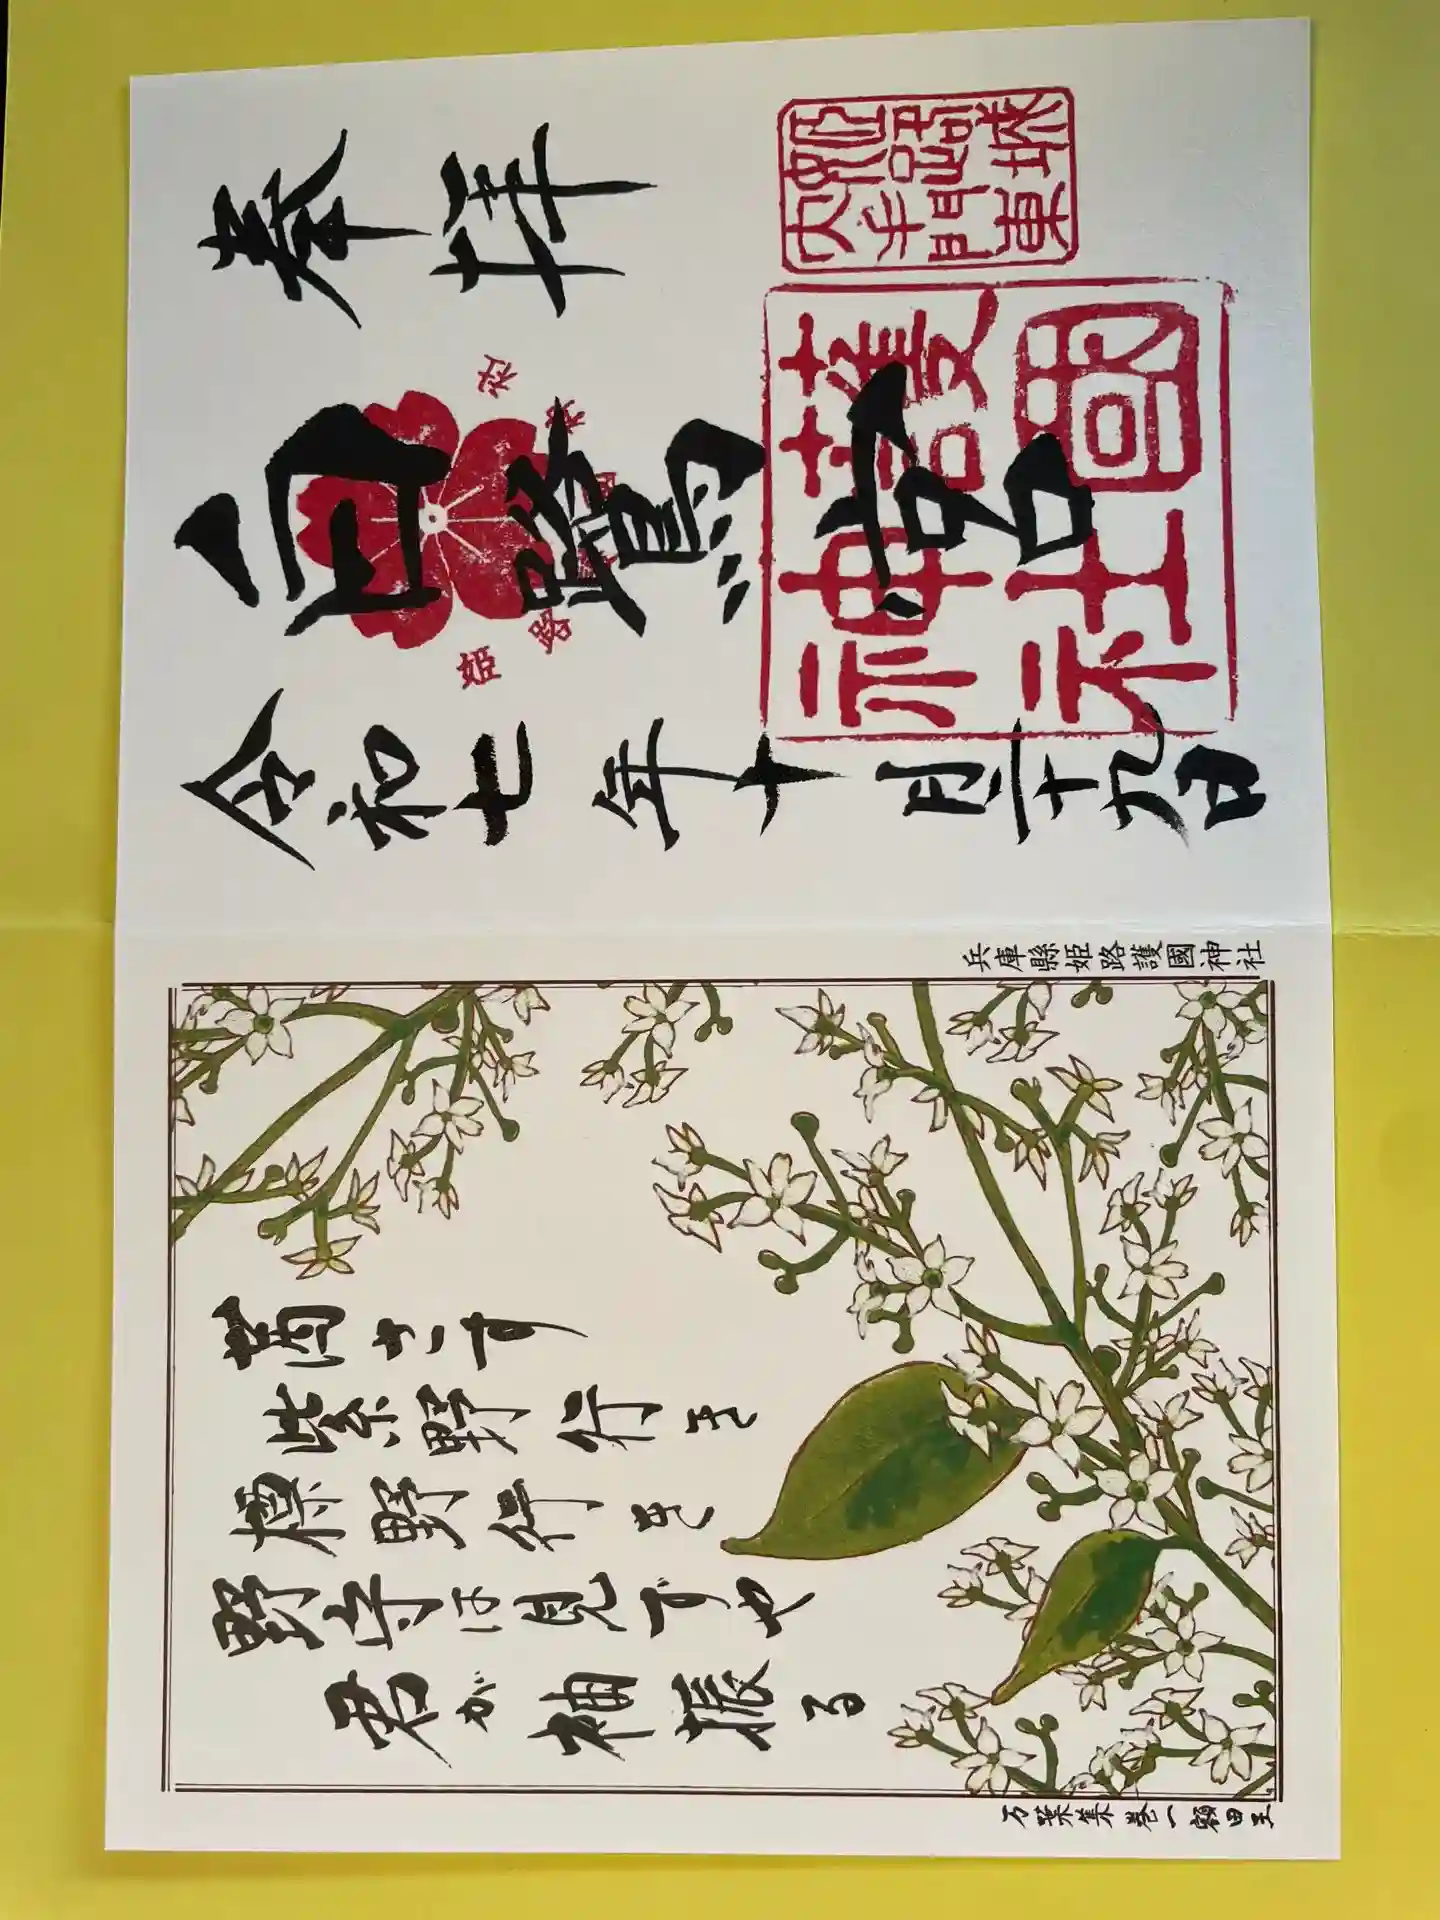 奉拝
姫路城
大手門東
白鷺宮
護國
神社
令和七年十月二十九日
兵庫縣姫路護國神社
茜さす
紫野行き
標野行き
野守は見ずや
君が袖振る
万葉集 巻一 額田王